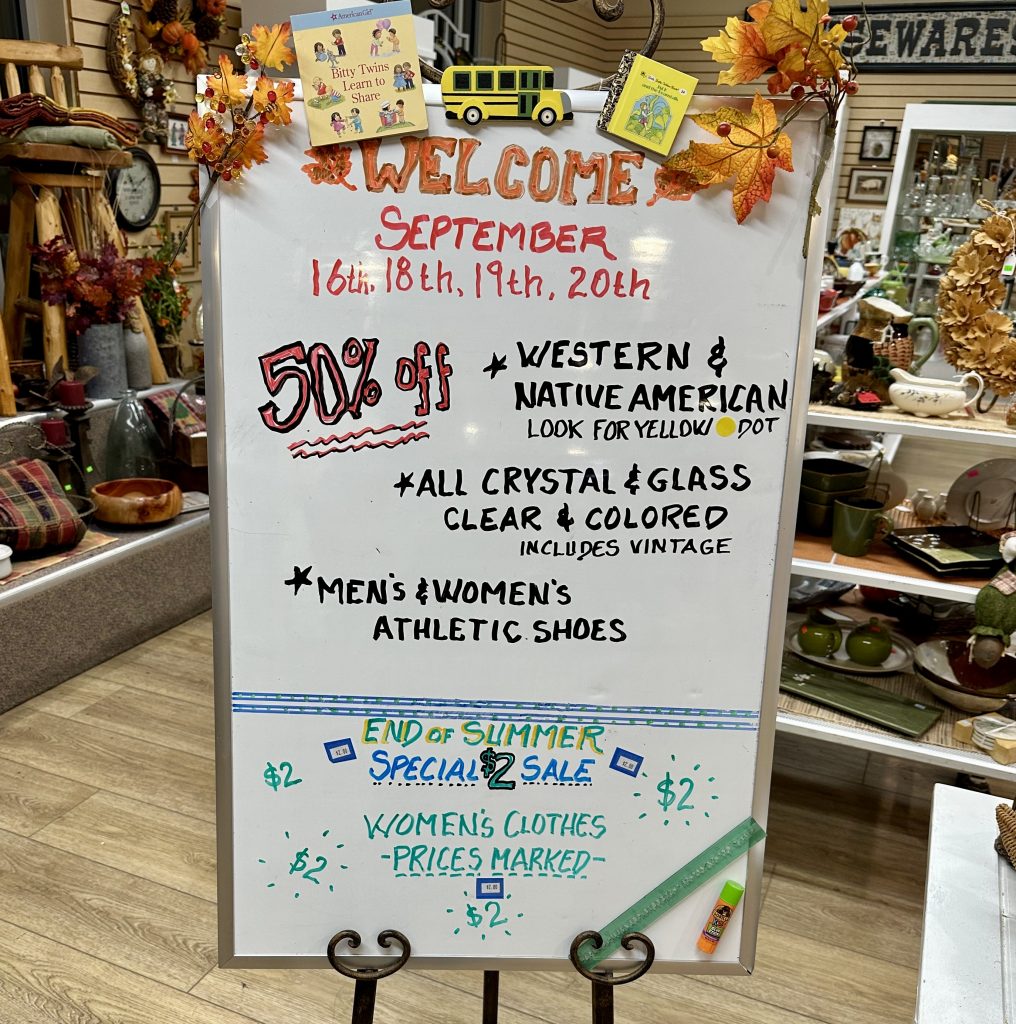 EWARES
AmericanGirl
Bitty Twins
Learn to
Share
WELCOME
SEPTEMBER
16th, 18th, 19th, 20th
50% off
* WESTERN &
NATIVE AMERICAN
LOOK FOR YELLOW DOT
*ALL CRYSTAL & GLASS
CLEAR & COLORED
INCLUDES VINTAGE
*MEN'S & WOMEN'S
ATHLETIC SHOES
END OF SUMMER
SPECIAL $2 SALE
$2.00
$2.00
$2
$2
WOMEN'S CLOTHES
-PRICES MARKED-
$2
$2.00
$2